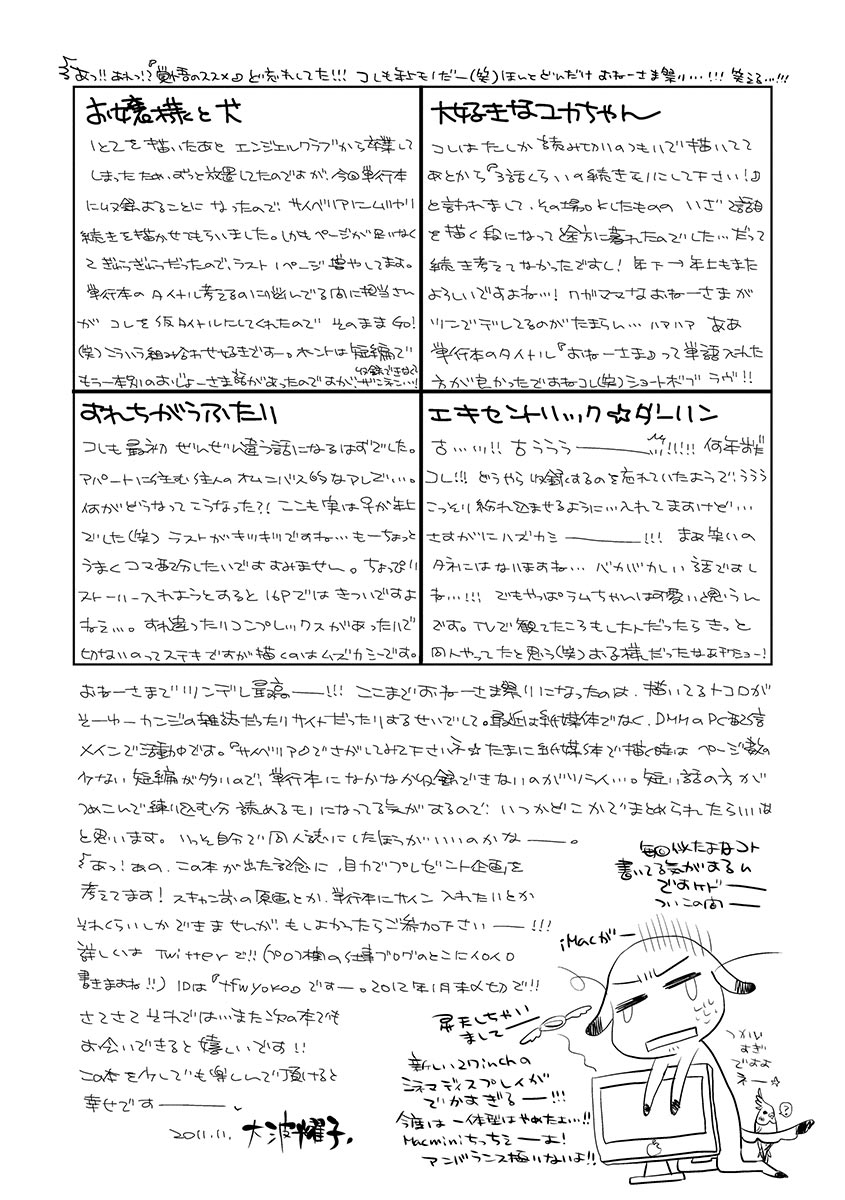 あっ!! あれっ!?『覚悟のススメ』ど忘れしてた!!! コレも年上モノだー(笑) ほんとどんだけ おねーさま祭り…!!! 笑える…!!!
お嬢様と犬
1と2を描いたあと エンジェルクラブから卒業して
しまったため、ずっと放置してたのですが、今回単行本
に収録することに なったので、サイベリアにムリヤリ
続きを描かせてもらいました。しかもページが足りなく
てぎゅうぎゅうだったので、ラスト1ページ 増やしてます。
単行本の タイトル考えるのに悩んでる間に担当さん
が コレを仮タイトルにしてくれたので そのままGO!
(笑)こういう組み合わせ好きですー。ホントは短編で
もう一本別のおじょーさま話があったのですが、収録できなくてザンネン…!
大好きなユカちゃん
コレはたしか 読み切りのつもりで描いてて
あとから『3話くらいの続きモノにして下さい!』
と言われまして、その場OKしたものの いざ2話目
を描く段になって途方に暮れたのでした…だって
続き考えてなかったですし! 年下→年上もまた
よろしいですよね…! ワガママなおねーさまが
ツンでデレしてるのがたまらん…ハアハア ああ
単行本のタイトル『おねーさま』って単語入れた
方が良かったですねコレ(笑)ショートボブ ラヴ!!
すれちがうふたり
コレも最初 ぜんぜん違う話になるはずでした。
アパートに住む住人のオムニバス的なアレでい…。
何がどうなってこうなった?! ここも実は♀が年上
でした(笑) ラストがキツキツですね… もーちょっと
うまくコマ配分したいです すみません。ちょっぴり
ストーリー入れようとすると16Pではきついですよ
ねぇ…。すれ違ったりコンプレックスがあったりで
切ないのってステキですが描くのはムズカシーです。
エキセントリック☆ダーリン
古…ッ!! 古ううう―――ッ!!!!! 何年前だ
コレ!!! どうやら収録するのを忘れていたようで、ううう
こっそり紛れ込ませるように…入れてますけどい…
さすがにハズカシ―――!!! まあ笑いの
タネにはなりますね… バカバカしい話ですし
ね…!!! でもやっぱラムちゃんは可愛いと思うん
です。TVで観てたころもし大人だったら きっと
同人やってたと思う(笑)
おねーさまでツンデレ最高の――!!! ここまでおねーさま祭りになったのは、描いてるトコロが
そーゆーカンジの雑誌だったりサイトだったりするせいでして。最近は紙媒体でなく、DMMのPC配信
メインで活動中です。『サイベリア』でさがしてみて下さいネ☆ たまに紙媒体で描く時は ページ数の
少ない短編が多いので、単行本になかなか収録できないのがツライ…。短い話の方が
つめこんで練り込む分 読めるモノになってる気がするので、いつかどこかでまとめられたらいいな
と思います。いっそ自分で同人誌にしたほうがいいのかな――。
あっ! あの、この本が出た記念に、自力でプレゼント企画を
考えてます! スキャン前の原画とか、単行本にサイン 入れたいとか
それくらいしかできませんが、もしよかったらご参加下さい――!!!
詳しいは Twitterで!! (プロフ欄の仕事ブログのとこにイロイロ
書きますね!!) IDは『tfwyoko』ですー。2012年1月末〆切で!!
さてさて それでは…また次の本でも
お会いできると嬉しいです!!
この本を少しでも楽しんで頂けると
幸せです―――。
2011.11. 大波耀子.
毎回似たよなコト
書いてる気がするん
ですけド――
ついこの間――
iMacが――
昇天しちゃい
まして――
新しい27inchの
シネマディスプレイが
でかすぎる――!!!
今度は一体型はやめたよ…!!
Macminiちっちぇーよ!
アンバランス極いないよ!!
つかい
すぎ
ですよ
ネー☆
?